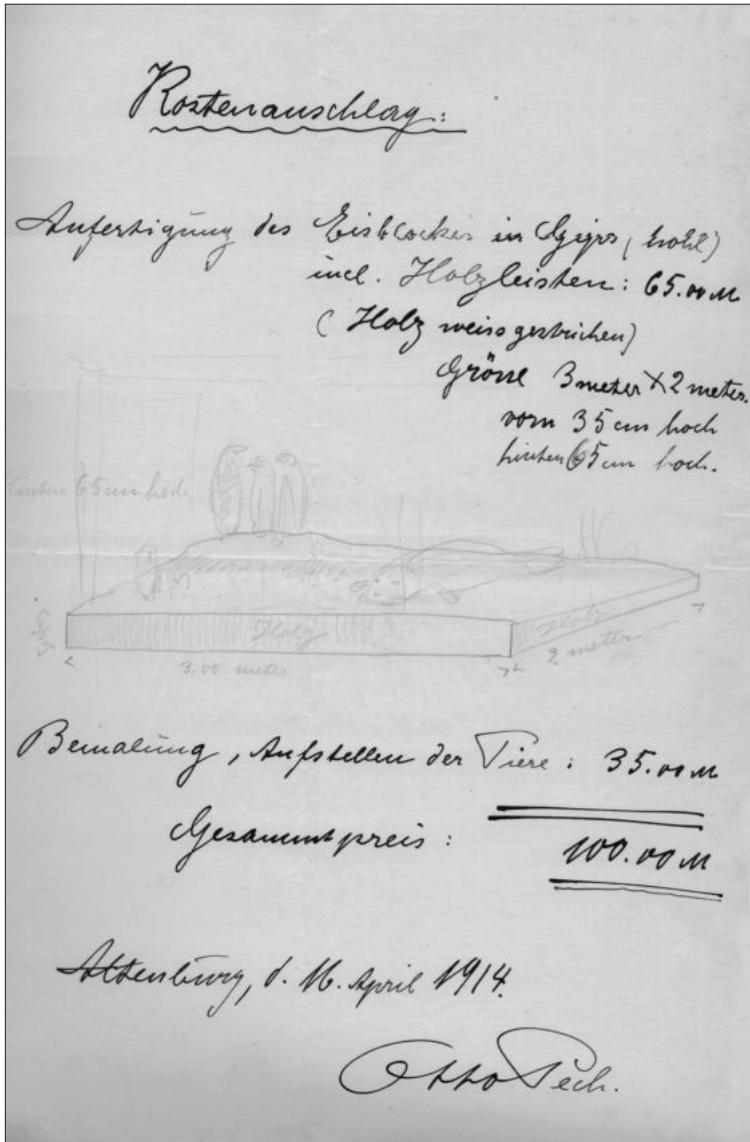 Kostenanschlag:
Anfertigung des Eisblockes in Gyps (hohl)
incl. Holzleisten: 65.00 M
(Holz weiss gestrichen)
Grösse 3 meter X 2 meter.
vorn 35 cm hoch
hinten 65 cm hoch.
hinten 65 cm hoch
Holz
Holz
3.00 meter
2 meter
Bemalung, Aufstellen der Tiere: 35.00 M
Gesammtpreis: 100.00 M
Altenburg, d. 16. April 1914.
Otto Pech.